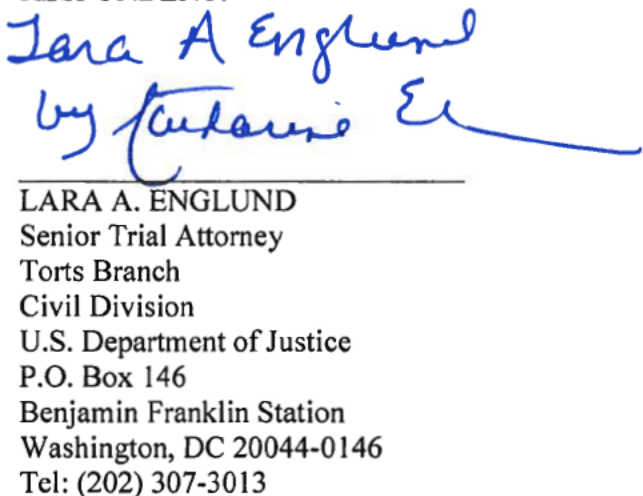 Lara A Englund
by
LARA A. ENGLUND
Senior Trial Attorney
Torts Branch
Civil Division
U.S. Department of Justice
P.O. Box 146
Benjamin Franklin Station
Washington, DC 20044-0146
Tel: (202) 307-3013